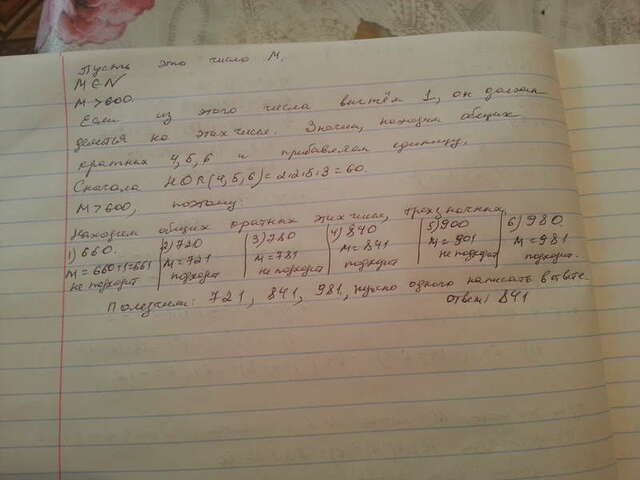 Пусть это число M.
M∈N
M>600.
Если из этого числа вычтем 1, он должен
делется на этих чисе. Значит, находим общих
кратных 4,5,6 и прибавляем единицу.
Сначала НОК(4,5,6)=2·2·5·3=60.
M>600, поэтому:
Находим общих кратных этих чисел, трехзначных.
1) 660. 2) 720 3) 780 4) 840 5) 900 6) 980.
M=660+1=661 M=721 M=781 M=841 M=901 M=981
не подходит подходит не подходит подходит не подходит подходит.
Получим: 721, 841, 981, нужно одного написать в ответе
ответ: 841